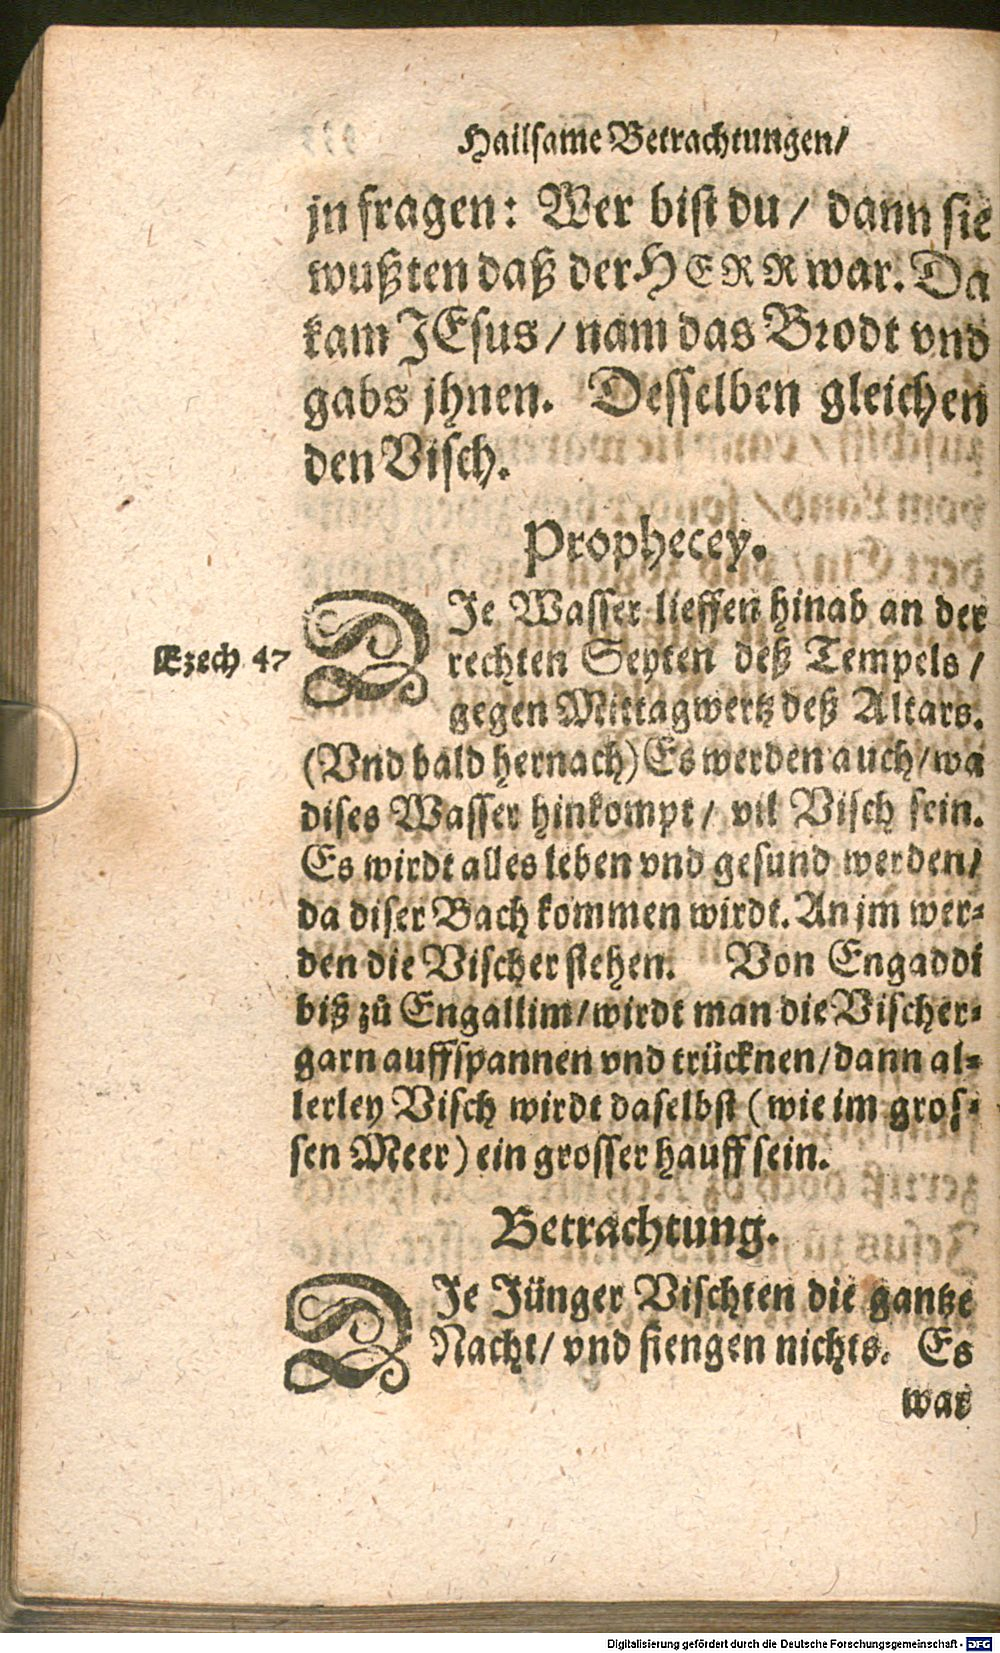 Hailsame Betrachtungen/
jn fragen: Wer bist du/ dann sie
wußten daß der HERR war. Da
kam JEsus/ nam das Brodt vnd
gabs jhnen. Desselben gleichen
den Visch.
Prophecey.
DIe Wasser lieffen hinab an der
Ezech 47
rechten Seyten deß Tempels/
gegen Mittagwertz deß Altars.
(Vnd bald hernach) Es werden auch/ wa
dises Wasser hinkompt/ vil Visch sein.
Es wirdt alles leben vnd gesund werden/
da diser Bach kommen wirdt. An jm wer-
den die Vischer stehen. Von Engaddi
biß zů Engallim/ wirdt man die Vischer-
garn auffspannen vnd trücknen/ dann al-
lerley Visch wirdt daselbst (wie im gros-
sen Meer) ein grosser hauff sein.
Betrachtung.
DIe Jünger Vischten die gantze
Nacht/ vnd fiengen nichts. Es
war
Digitalisierung gefördert durch die Deutsche Forschungsgemeinschaft - DFG